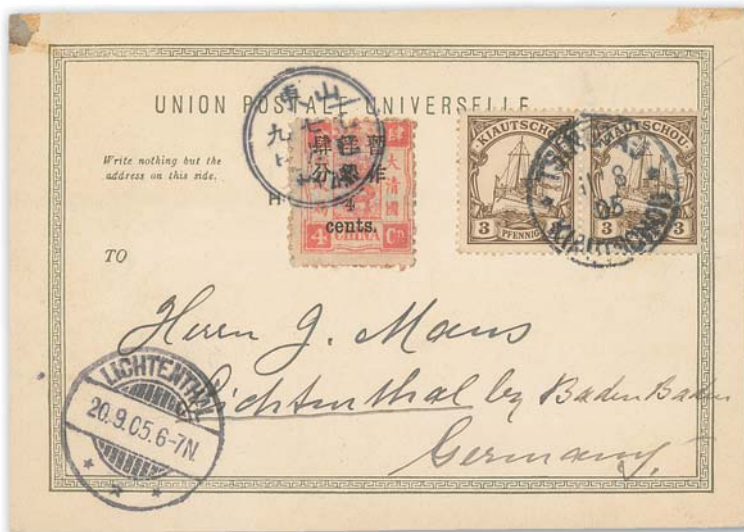 UNION POSTALE UNIVERSELLE
Write nothing but the
address on this side.
H
TO
山
九
暫作
洋銀
肆分
大清國
4
cents.
4 CHINA Cn
KIAUTSCHOU
3 PFENNIG
KIAUTSCHOU
3 3
TSINGTAU
8
05
KIAUTSCHOU
Herrn J. Maus
Lichtenthal by Baden Baden
Germany.
LICHTENTHAL
20.9.05.6-7N.